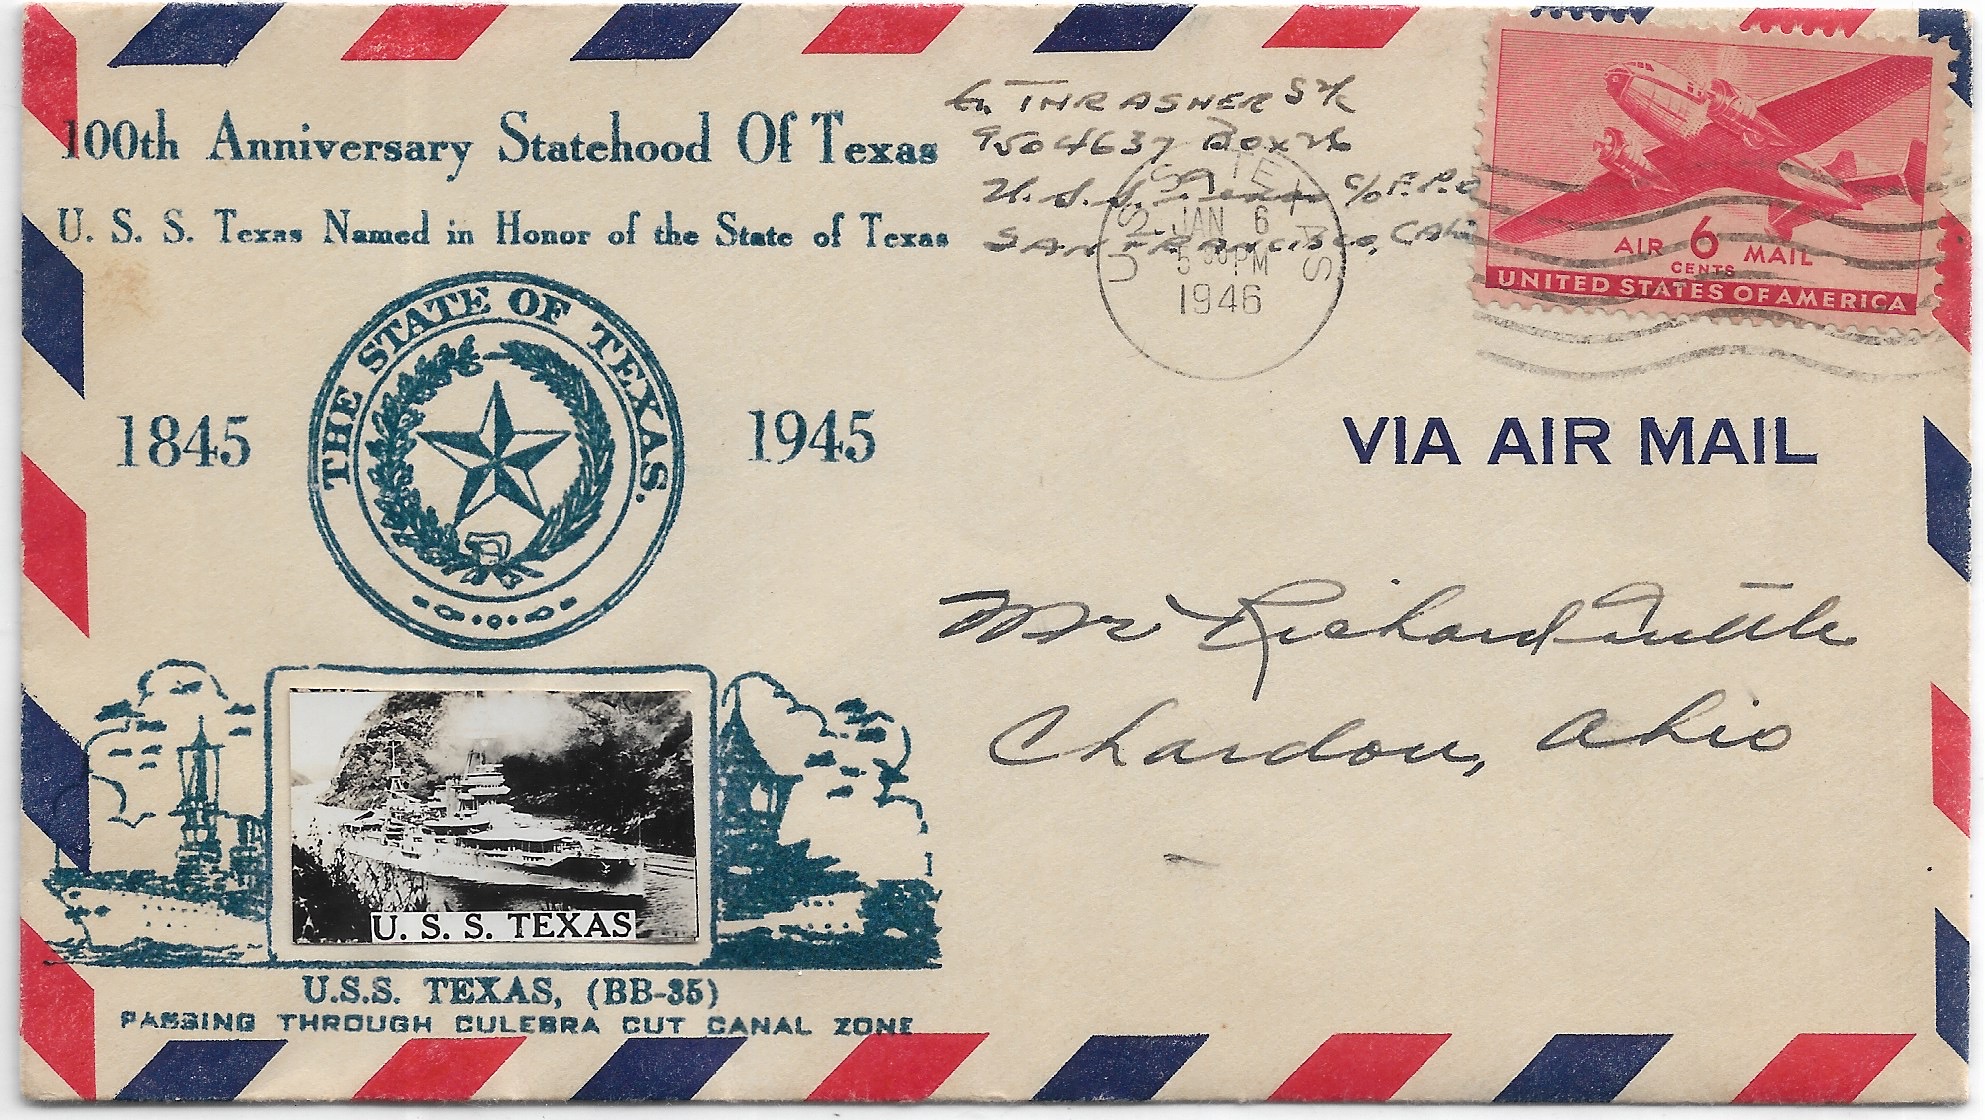 100th Anniversary Statehood Of Texas
U. S. S. Texas Named in Honor of the State of Texas
THE STATE OF TEXAS.
1845
1945
U. S. S. TEXAS
U.S.S. TEXAS, (BB-35)
PASSING THROUGH CULEBRA CUT CANAL ZONE
THRASHER S 1/c
9504637 Box 26
U.S.S. Texas c/o F.P.O
SAN FRANCISCO, Cali
U.S.S. TEXAS
JAN 6
5 00 PM
1946
AIR 6 MAIL
CENTS
UNITED STATES OF AMERICA
VIA AIR MAIL
Mr Richard Tuttle
Chardon, Ohio